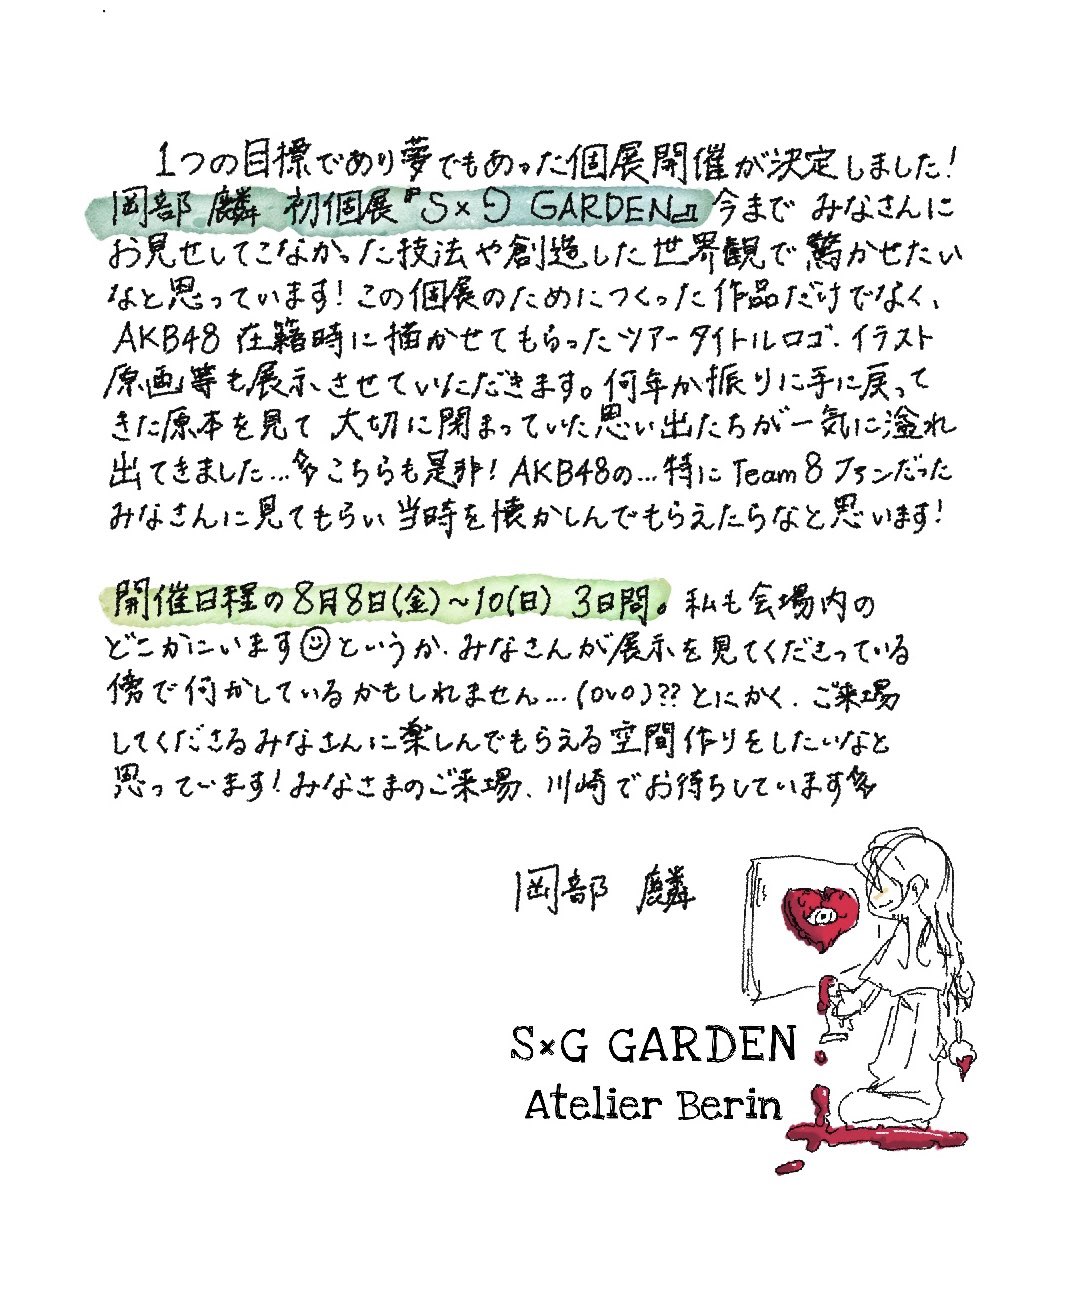 1つの目標であり夢でもあった個展開催が決定しました!
岡部 麟 初個展『S×G GARDEN』今まで みなさんに
お見せしてこなかった技法や創造した世界観で驚かせたい
なと思っています!この個展のためにつくった作品だけでなく、
AKB48 在籍時に描かせてもらったツアータイトルロゴ、イラスト
原画等も展示させていただきます。何年か振りに手に戻って
きた原本を見て 大切に閉まっていた思い出たちが一気に溢れ
出てきました…こちらも是非!AKB48の…特にTeam8ファンだった
みなさんに見てもらい当時を懐かしんでもらえたらなと思います!
開催日程の8月8日(金)~10(日) 3日間。私も会場内の
どこかにいます☺というか、みなさんが展示を見てくださっている
傍で何かしているかもしれません…(OvO)??とにかく、ご来場
してくださるみなさんに楽しんでもらえる空間作りをしたいなと
思っています!みなさまのご来場、川崎でお待ちしています
岡部 麟
S×G GARDEN
Atelier Berin